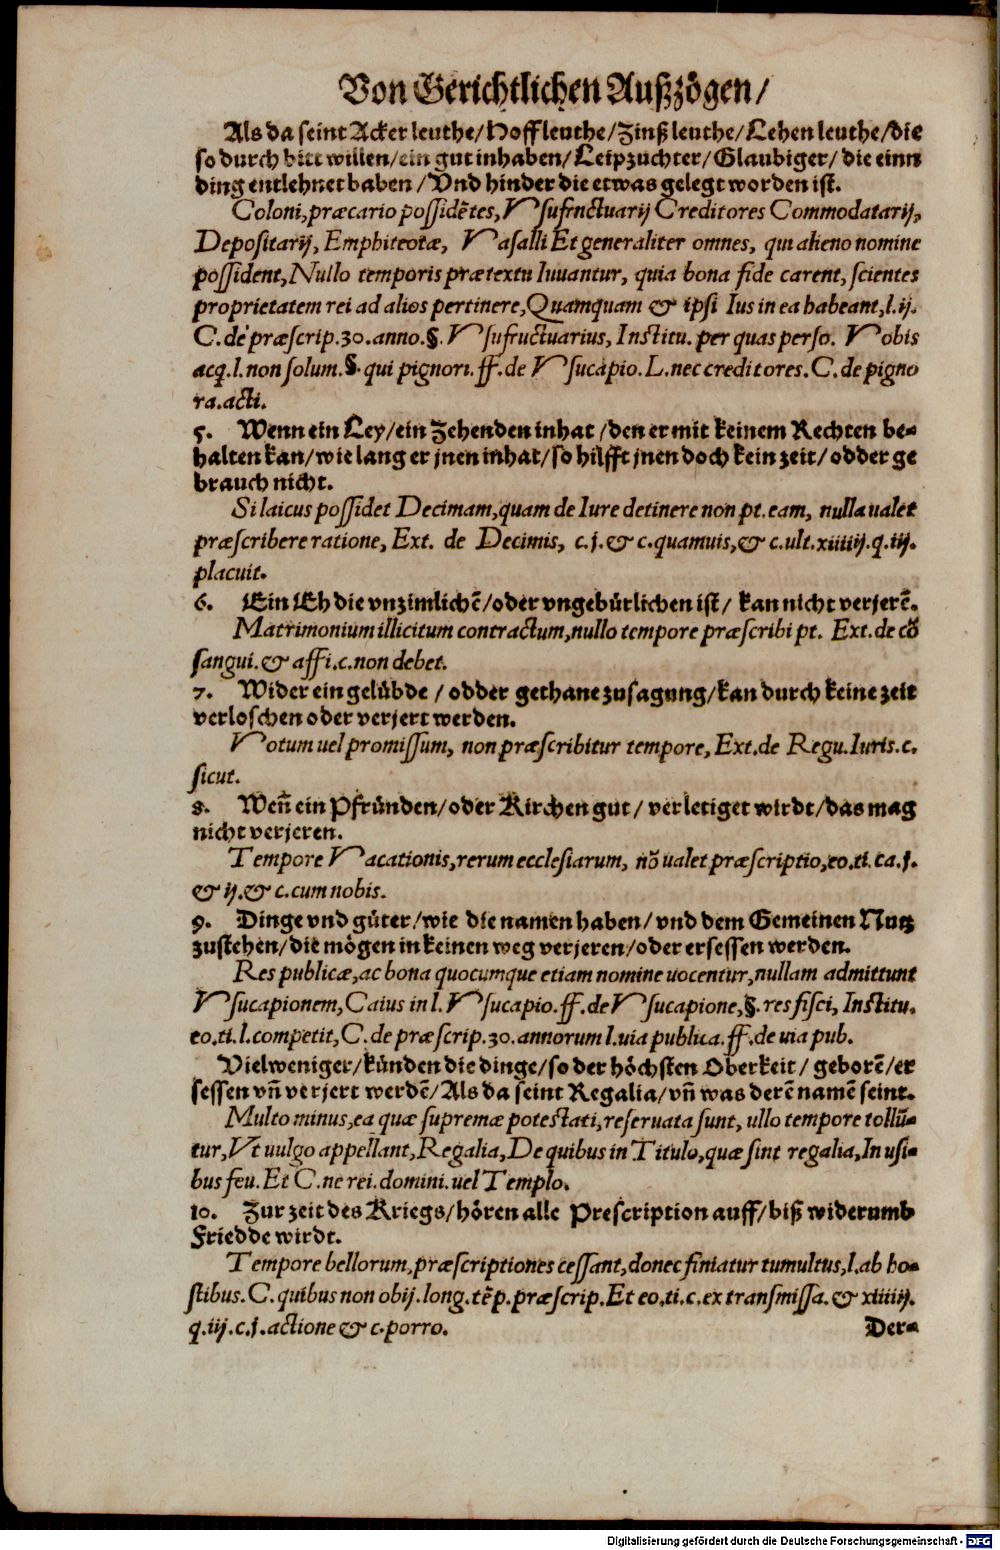 Von Gerichtlichen Außzögen/
Als da seint Acker leuthe/Hoffleuthe/Zinß leuthe/Lehen leuthe/die
so durch bitt willen/ein gut inhaben/Leipzuchter/Glaubiger/die einn
ding entlehnet haben/Vnd hinder die etwas gelegt worden ist.
Coloni, præcario possidẽtes, Vsufrnctuarij Creditores Commodatarij,
Depositarij, Emphiteotæ, Vasalli Et generaliter omnes, qui alieno nomine
possident, Nullo temporis prætextu Iuuantur, quia bona fide carent, scientes
proprietatem rei ad alios pertinere, Quamquam & ipsi Ius in ea habeant, l. ij.
C. de præscrip. 30. anno. §. Vsufructuarius, Institu. per quas perso. Nobis
acq. l. non solum. §. qui pignori. ff. de Vsucapio. L. nec creditores. C. de pigno
ra. acti.
5. Wenn ein Ley/ein Zehenden inhat/den er mit keinem Rechten be-
halten kan/wie lang er jnen inhat/so hilfft jnen doch kein zeit/odder ge
brauch nicht.
Si laicus possidet Decimam, quam de Iure detinere non pt. eam, nulla ualet
præscribere ratione, Ext. de Decimis, c. j. & c. quamuis, & c. ult. xiiiiij. q. iij.
placuit.
6. Ein Eh die vnzimlichẽ/oder vngebürlichen ist/ kan nicht verjerẽ.
Matrimonium illicitum contractum, nullo tempore præscribi pt. Ext. de cõ
sangui. & affi. c. non debet.
7. Wider ein gelübde / odder gethane zusagung/kan durch keine zeit
verloschen oder verjert werden.
Votum uel promissum, non præscribitur tempore, Ext. de Regu. Iuris. c.
sicut.
8. Weñ ein Pfründen/oder Kirchen gut/ verletiget wirdt/das mag
nicht verjeren.
Tempore Vacationis, rerum ecclesiarum, nõ ualet præscriptio, eo. ti. ca. j.
& ij. & c. cum nobis.
9. Dinge vnd güter/wie die namen haben/vnd dem Gemeinen Nutz
zustehen/die mögen in keinen weg verjeren/oder ersessen werden.
Res publicæ, ac bona quocumque etiam nomine uocentur, nullam admittunt
Vsucapionem, Caius in l. Vsucapio. ff. de Vsucapione, §. res fisci, Institu.
eo. ti. l. competit, C. de præscrip. 30. annorum l. uia publica. ff. de uia pub.
Vielweniger/künden die dinge/so der höchsten Oberkeit/ geborẽ/er
sessen vñ verjert werdẽ/Als da seint Regalia/vñ was derẽ namẽ seint.
Multo minus, ea quæ supremæ potestati, reseruata sunt, ullo tempore tollũ-
tur, Vt uulgo appellant, Regalia, De quibus in Titulo, quæ sint regalia, In usi-
bus feu. Et C. ne rei. domini. uel Templo.
10. Zur zeit des Kriegs/hören alle Prescription auff/biß widerumb
Friedde wirdt.
Tempore bellorum, præscriptiones cessant, donec finiatur tumultus, l. ab ho-
stibus. C. quibus non obij. long. tẽp. præscrip. Et eo. ti. c. ex transmissa. & xiiiiij.
q. iij. c. j. actione & c. porro.
Der-
Digitalisierung gefördert durch die Deutsche Forschungsgemeinschaft - DFG